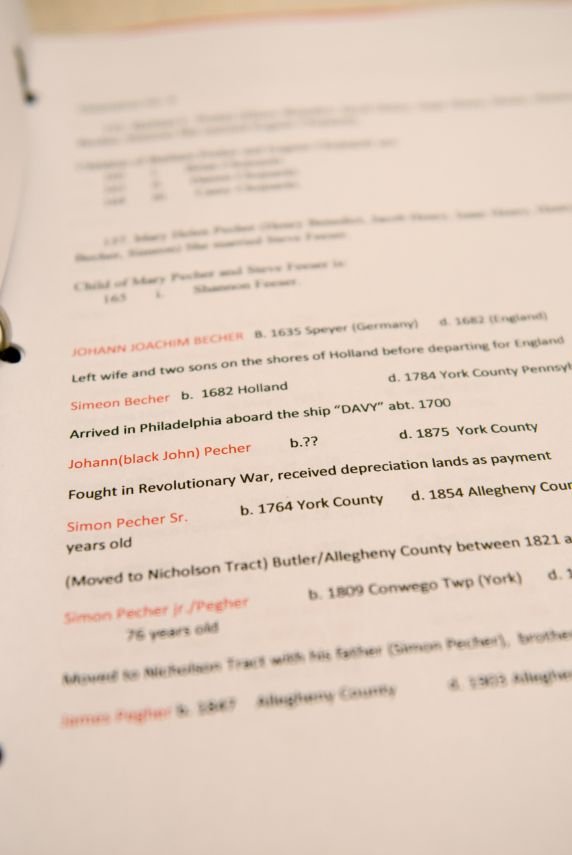 137. Mary Helen Pecher (Henry Benedict, Jacob Henry, Isaac Henry,
Becher, Simeon) She married Steve Feeser.
Child of Mary Pecher and Steve Feeser is:
165 i. Shannon Feeser.
JOHANN JOACHIM BECHER B. 1635 Speyer (Germany) d. 1682 (England)
Left wife and two sons on the shores of Holland before departing for England
Simeon Becher b. 1682 Holland d. 1784 York County Pennsyl
Arrived in Philadelphia aboard the ship “DAVY” abt. 1700
Johann(black John) Pecher b.?? d. 1875 York County
Fought in Revolutionary War, received depreciation lands as payment
Simon Pecher Sr. b. 1764 York County d. 1854 Allegheny Coun
years old
(Moved to Nicholson Tract) Butler/Allegheny County between 1821 a
Simon Pecher jr./Pegher b. 1809 Conwego Twp (York) d. 1
76 years old
Moved to Nicholson Tract with his father (Simon Pecher), brothe
James Pegher b. 1847 Allegheny County d. 1903 Alleghe